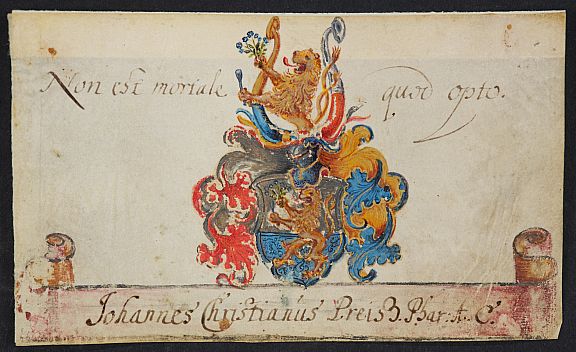 Non est mortale quod opto.
Johannes Christianus Preiß. Phar. A. C.